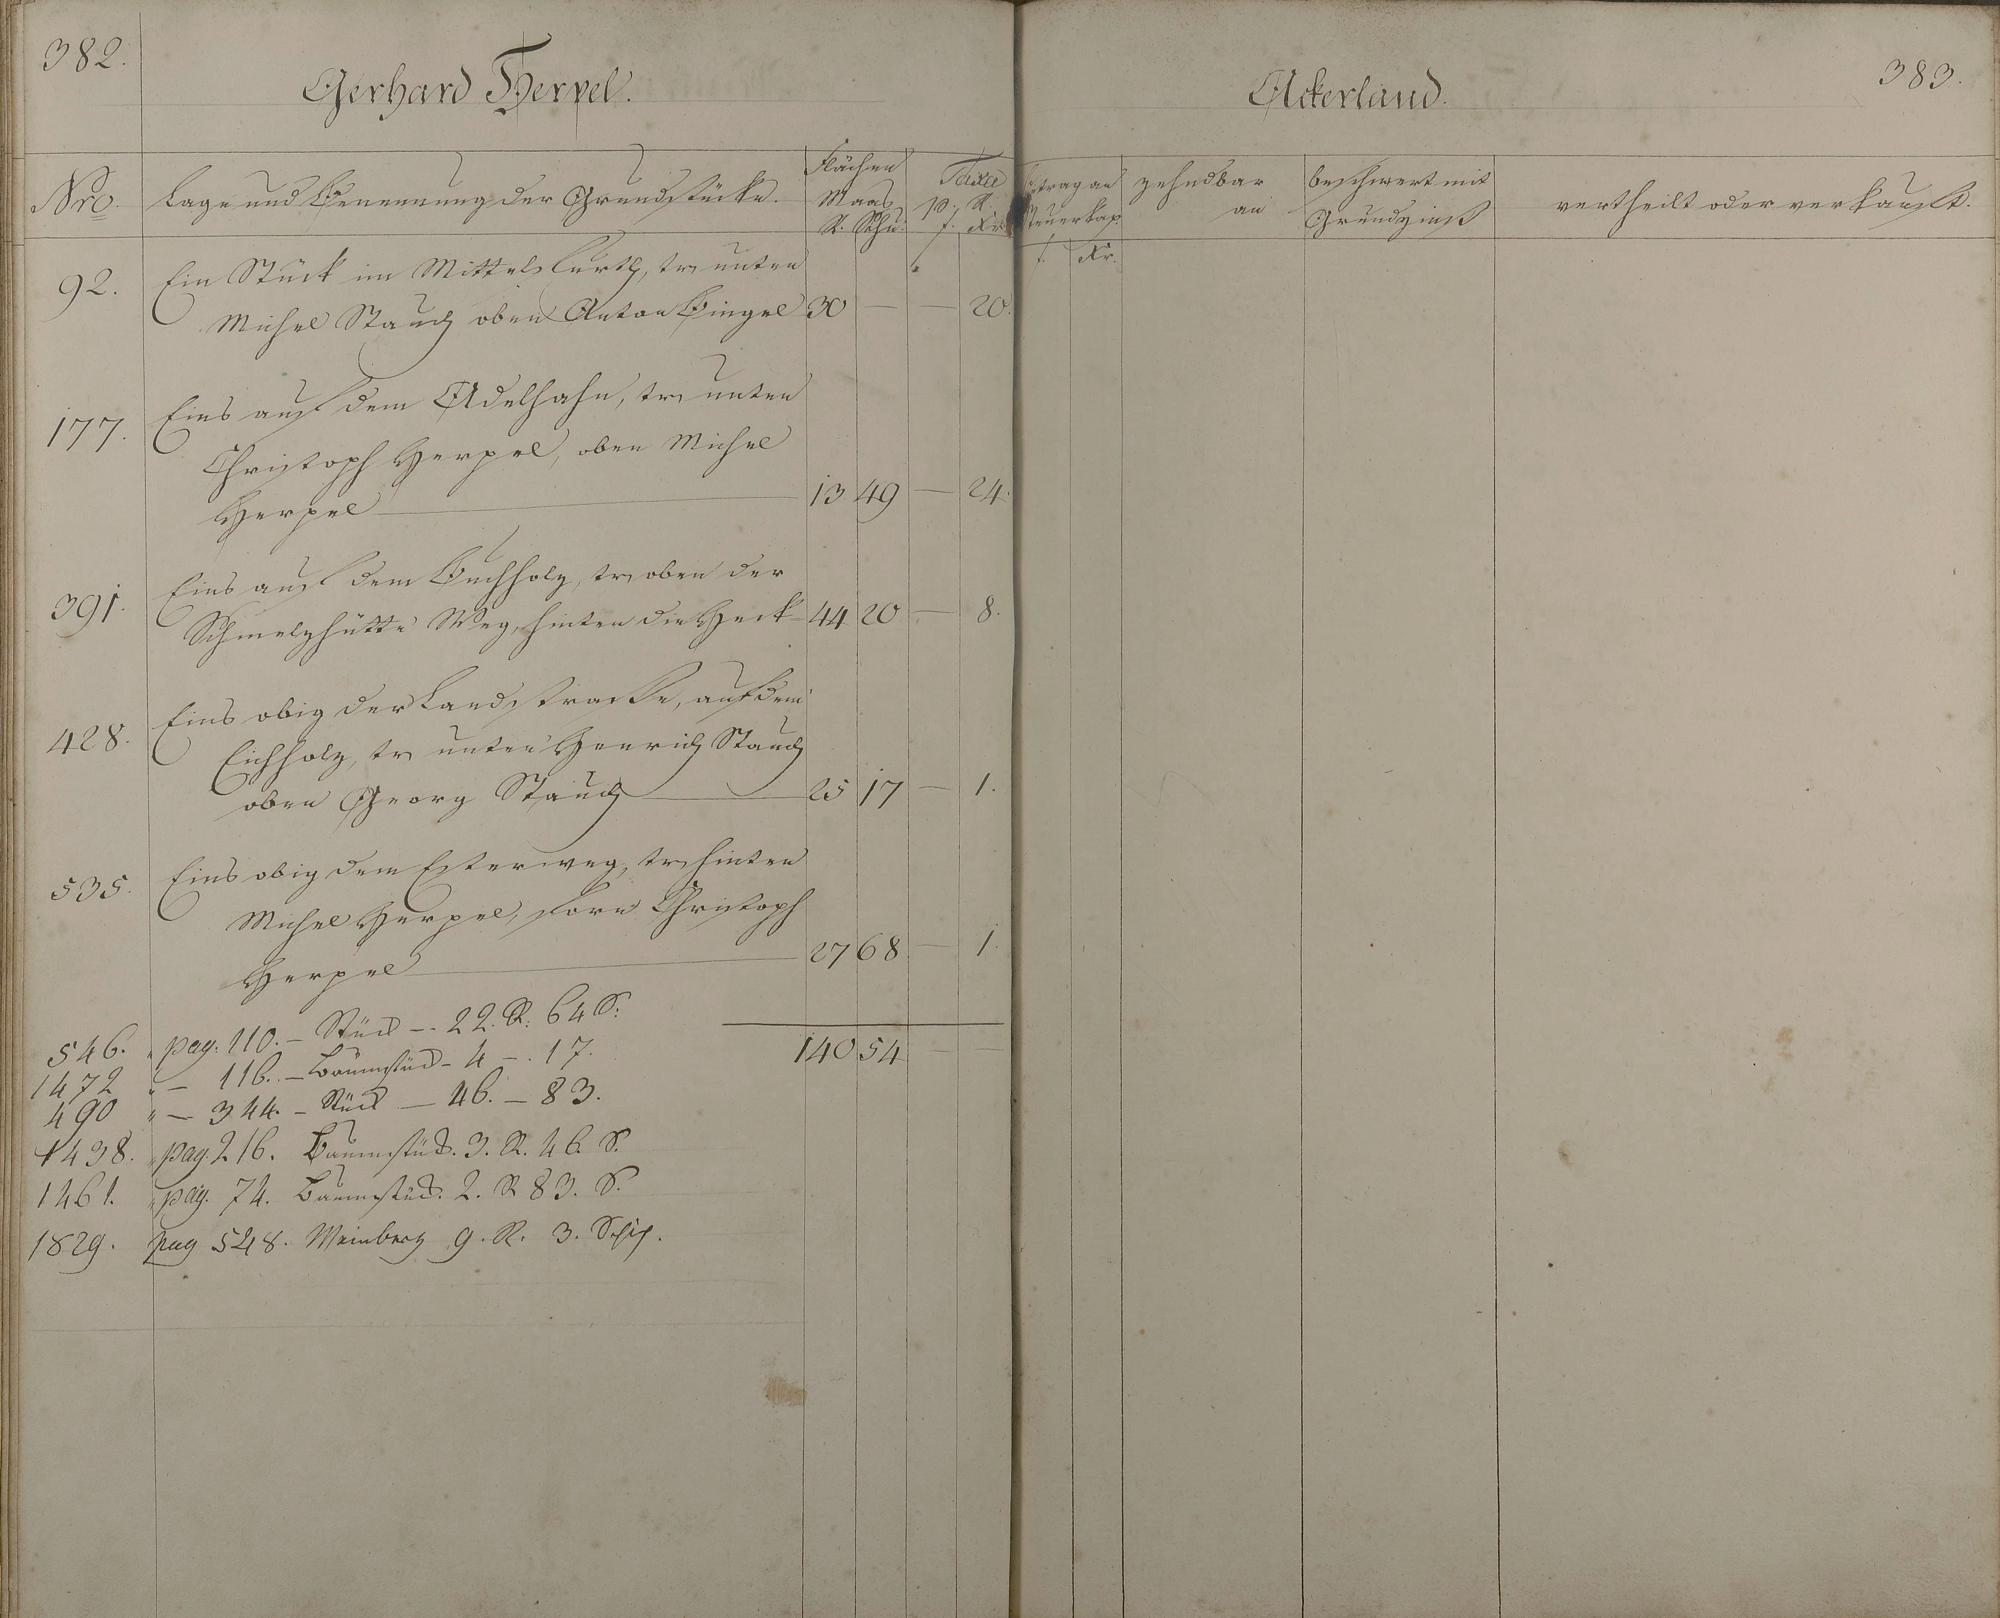 382.
Gerhard Herpel.
Nro.
Lage und Benennung der Grundstücke.
Flächen
Maas
R. Schu.
Taxa
p. R.
f. Xr.
92. Ein Stück im Mittelsfurth, tr. unten
Michel Stauch oben Anton Bingel 30 — — 20.
177. Eins auf dem Adelhahn, tr. unten
Christoph Herpel, oben Michel
Herpel 13 49 — 24.
391. Eins auf dem Buchholz, tr. oben der
Schmelzhütte Weg, hinten die Heck 44 20 — 8.
428. Eins obig der Landstrasse, auf dem
Eichholz, tr. unten Henrich Stauch
oben Georg Stauch 25 17 — 1.
535. Eins obig dem Esterweg, tr. hinten
Michel Herpel, forn Christoph
Herpel 27 68 — 1.
140 54 — —
546. " pag. 110. — Stück — 22. R. 64 S.
1472 " — 116. — Baumstück — 4 — . 17.
490 " — 344. — Stück — 46. — 83.
1438. " pag. 216. Baumstück. 3. R. 46. S.
1461. " pag. 74. Baumstück. 2. R 83. S.
1829. pag 548. Weinberg 9. R. 3. Sch.
383.
Ackerland.
trag an
teuerkap.
f. Xr.
zehndbar
an
beschwert mit
Grundzinß
vertheilt oder verkauft.